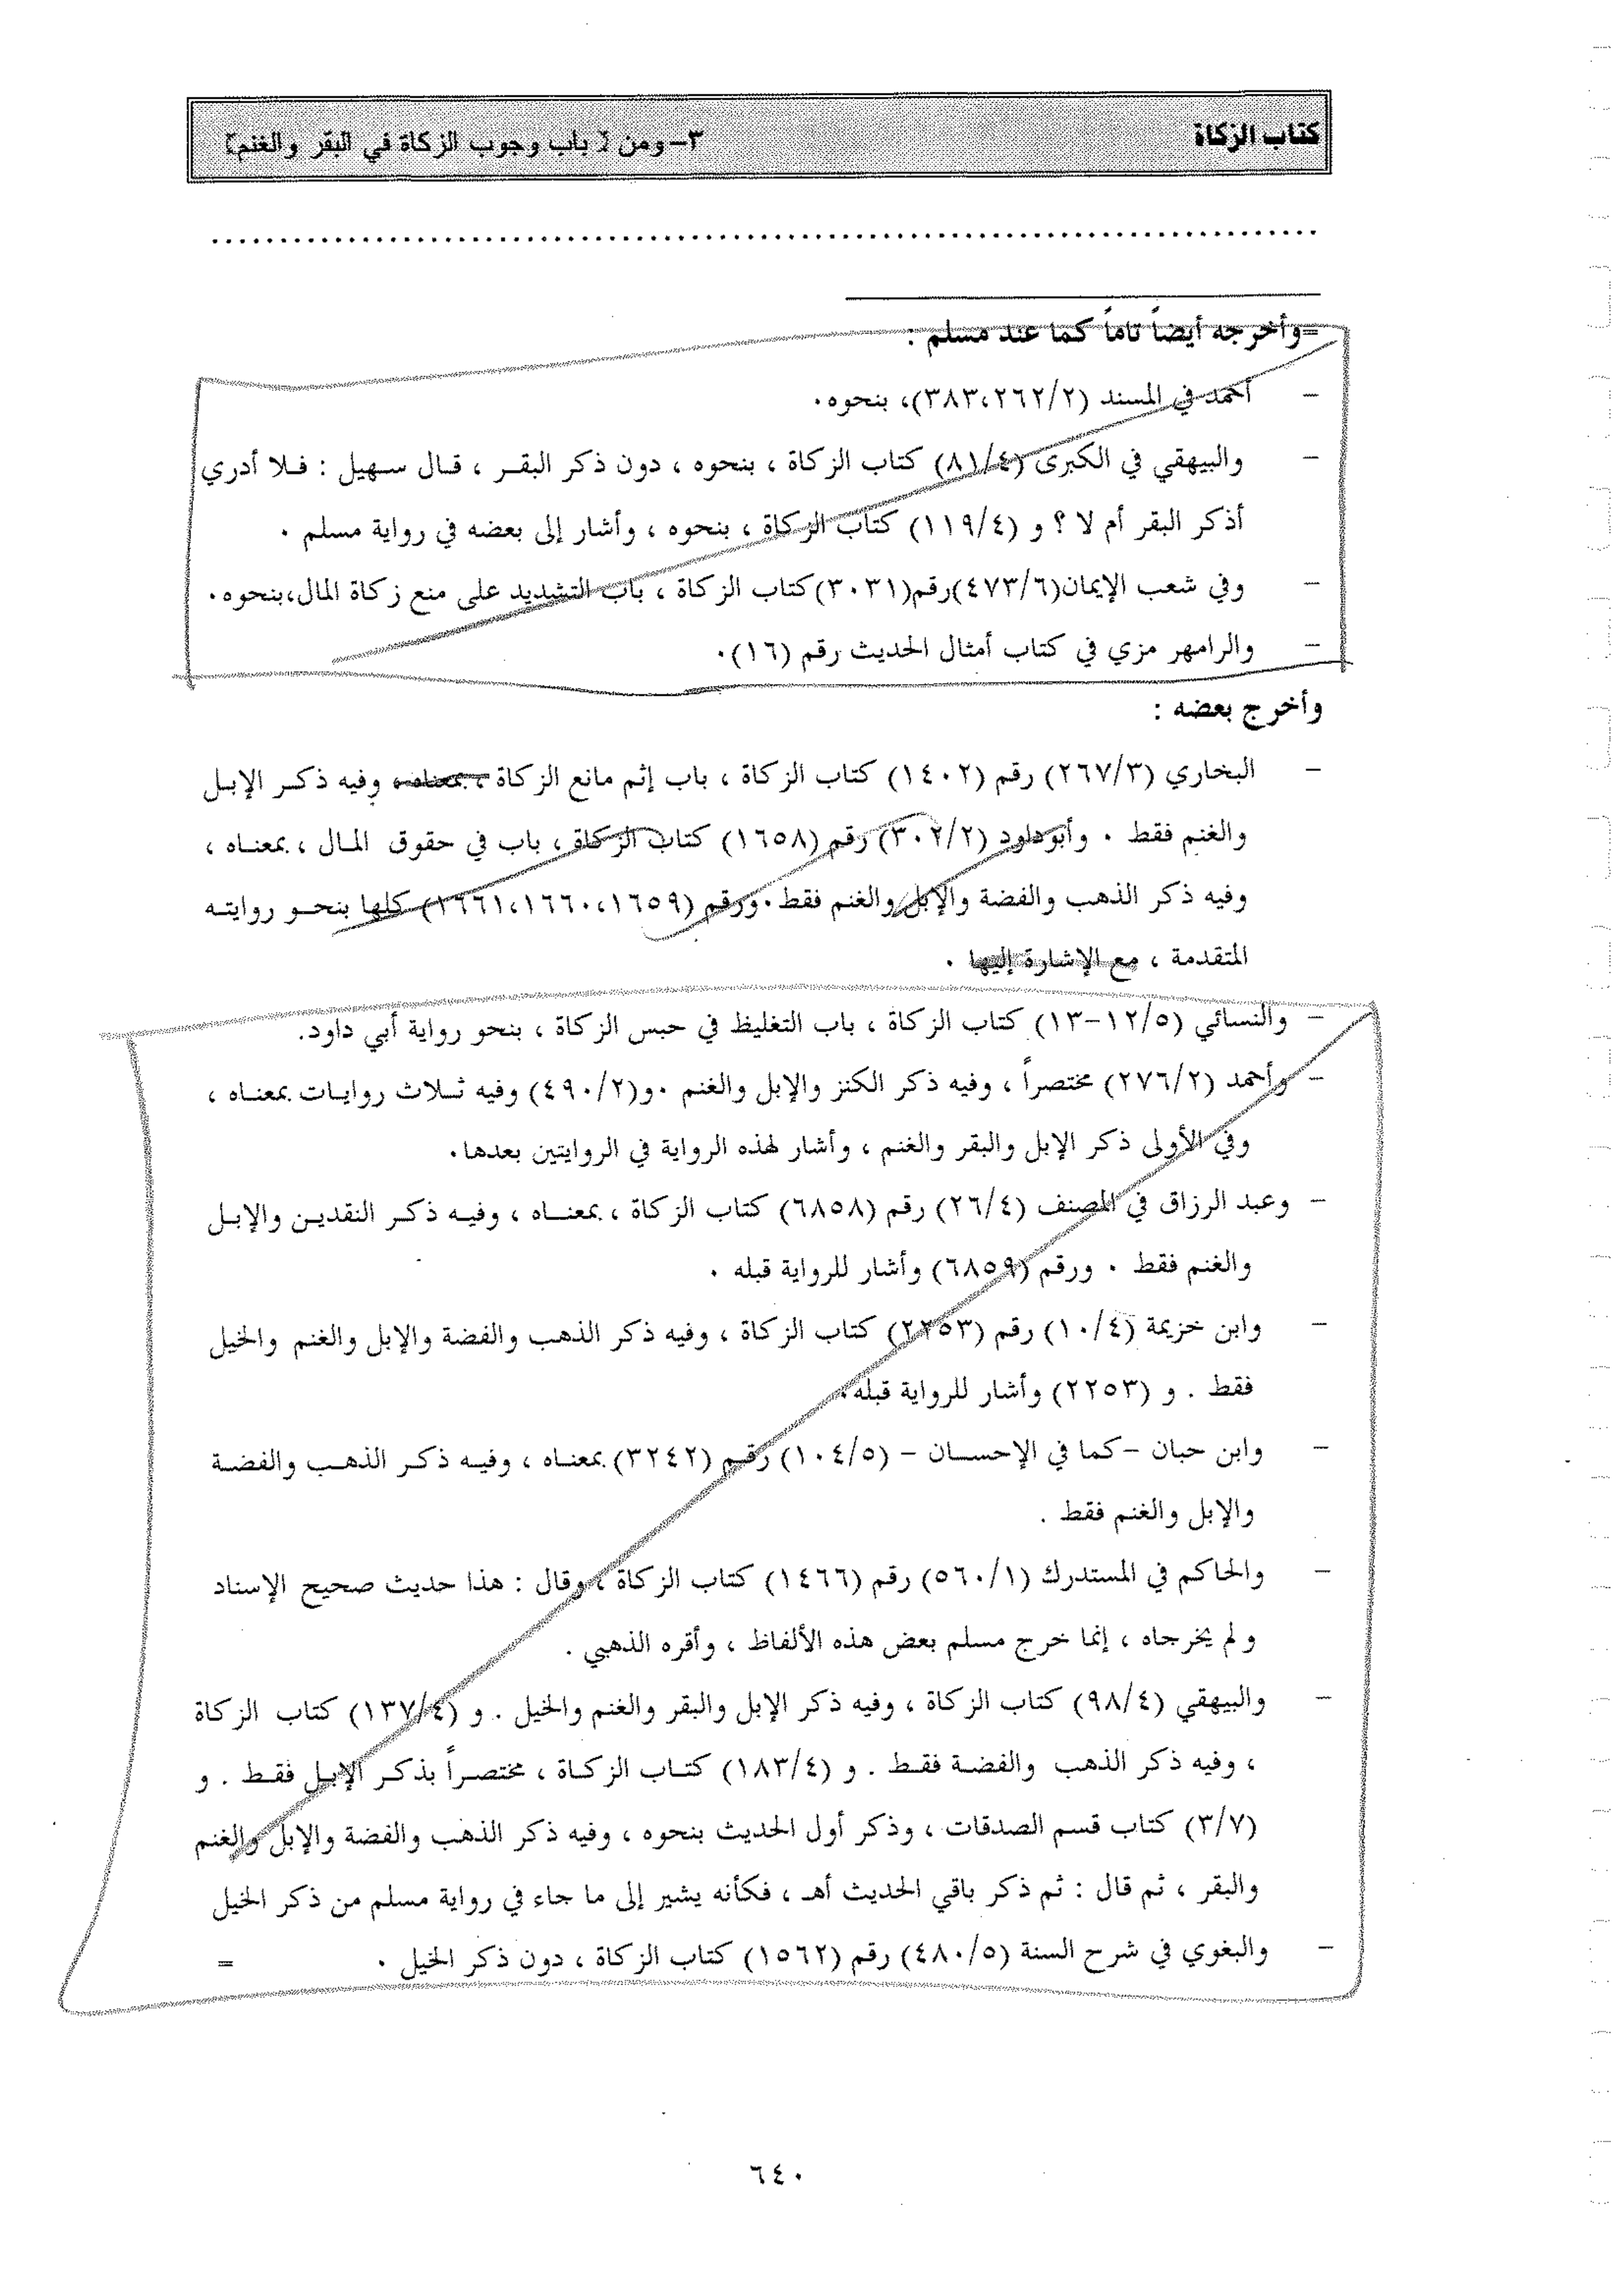 كتاب الزكاة
٣- ومن [ باب وجوب الزكاة في البقر والغنم]
=وأخرجه أيضاً تاماً كما عند مسلم :
- أحمد في المسند (٣٨٣،٢٦٢/٢)، بنحوه.
- والبيهقي في الكبرى (٨١/٤) كتاب الزكاة ، بنحوه ، دون ذكر البقر ، قال سهيل : فلا أدري
أذكر البقر أم لا ؟ و (١١٩/٤) كتاب الزكاة ، بنحوه ، وأشار إلى بعضه في رواية مسلم .
- وفي شعب الإيمان(٤٧٣/٦)رقم(٣٠٣١)كتاب الزكاة ، باب التشديد على منع زكاة المال،بنحوه.
- والرامهر مزي في كتاب أمثال الحديث رقم (١٦).
وأخرج بعضه :
- البخاري (٢٦٧/٣) رقم (١٤٠٢) كتاب الزكاة ، باب إثم مانع الزكاة ، بمعناه ، وفيه ذكر الإبل
والغنم فقط . وأبوداود (٣٠٢/٢) رقم (١٦٥٨) كتاب الزكاة ، باب في حقوق المال ، بمعناه ،
وفيه ذكر الذهب والفضة والإبل والغنم فقط.ورقم (١٦٦١،١٦٦٠،١٦٥٩) كلها بنحو روايته
المتقدمة ، مع الإشارة إليها .
- والنسائي (١٢/٥-١٣) كتاب الزكاة ، باب التغليظ في حبس الزكاة ، بنحو رواية أبي داود.
- وأحمد (٢٧٦/٢) مختصراً ، وفيه ذكر الكنز والإبل والغنم .و(٤٩٠/٢) وفيه ثلاث روايات بمعناه ،
وفي الأولى ذكر الإبل والبقر والغنم ، وأشار لهذه الرواية في الروايتين بعدها.
- وعبد الرزاق في المصنف (٢٦/٤) رقم (٦٨٥٨) كتاب الزكاة ، بمعناه ، وفيه ذكر النقدين والإبل
والغنم فقط . ورقم (٦٨٥٩) وأشار للرواية قبله .
- وابن خزيمة (١٠/٤) رقم (٢٢٥٣) كتاب الزكاة ، وفيه ذكر الذهب والفضة والإبل والغنم والخيل
فقط . و (٢٢٥٣) وأشار للرواية قبله.
- وابن حبان -كما في الإحسان - (١٠٤/٥) رقم (٣٢٤٢) بمعناه ، وفيه ذكر الذهب والفضة
والإبل والغنم فقط .
- والحاكم في المستدرك (٥٦٠/١) رقم (١٤٦٦) كتاب الزكاة ، وقال : هذا حديث صحيح الإسناد
و لم يخرجاه ، إنما خرج مسلم بعض هذه الألفاظ ، وأقره الذهبي .
- والبيهقي (٩٨/٤) كتاب الزكاة ، وفيه ذكر الإبل والبقر والغنم والخيل . و (١٣٧/٤) كتاب الزكاة
، وفيه ذكر الذهب والفضة فقط . و (١٨٣/٤) كتاب الزكاة ، مختصراً بذكر الإبل فقط . و
(٣/٧) كتاب قسم الصدقات ، وذكر أول الحديث بنحوه ، وفيه ذكر الذهب والفضة والإبل والغنم
والبقر ، ثم قال : ثم ذكر باقي الحديث أهـ ، فكأنه يشير إلى ما جاء في رواية مسلم من ذكر الخيل
- والبغوي في شرح السنة (٤٨٠/٥) رقم (١٥٦٢) كتاب الزكاة ، دون ذكر الخيل . =
٦٤٠